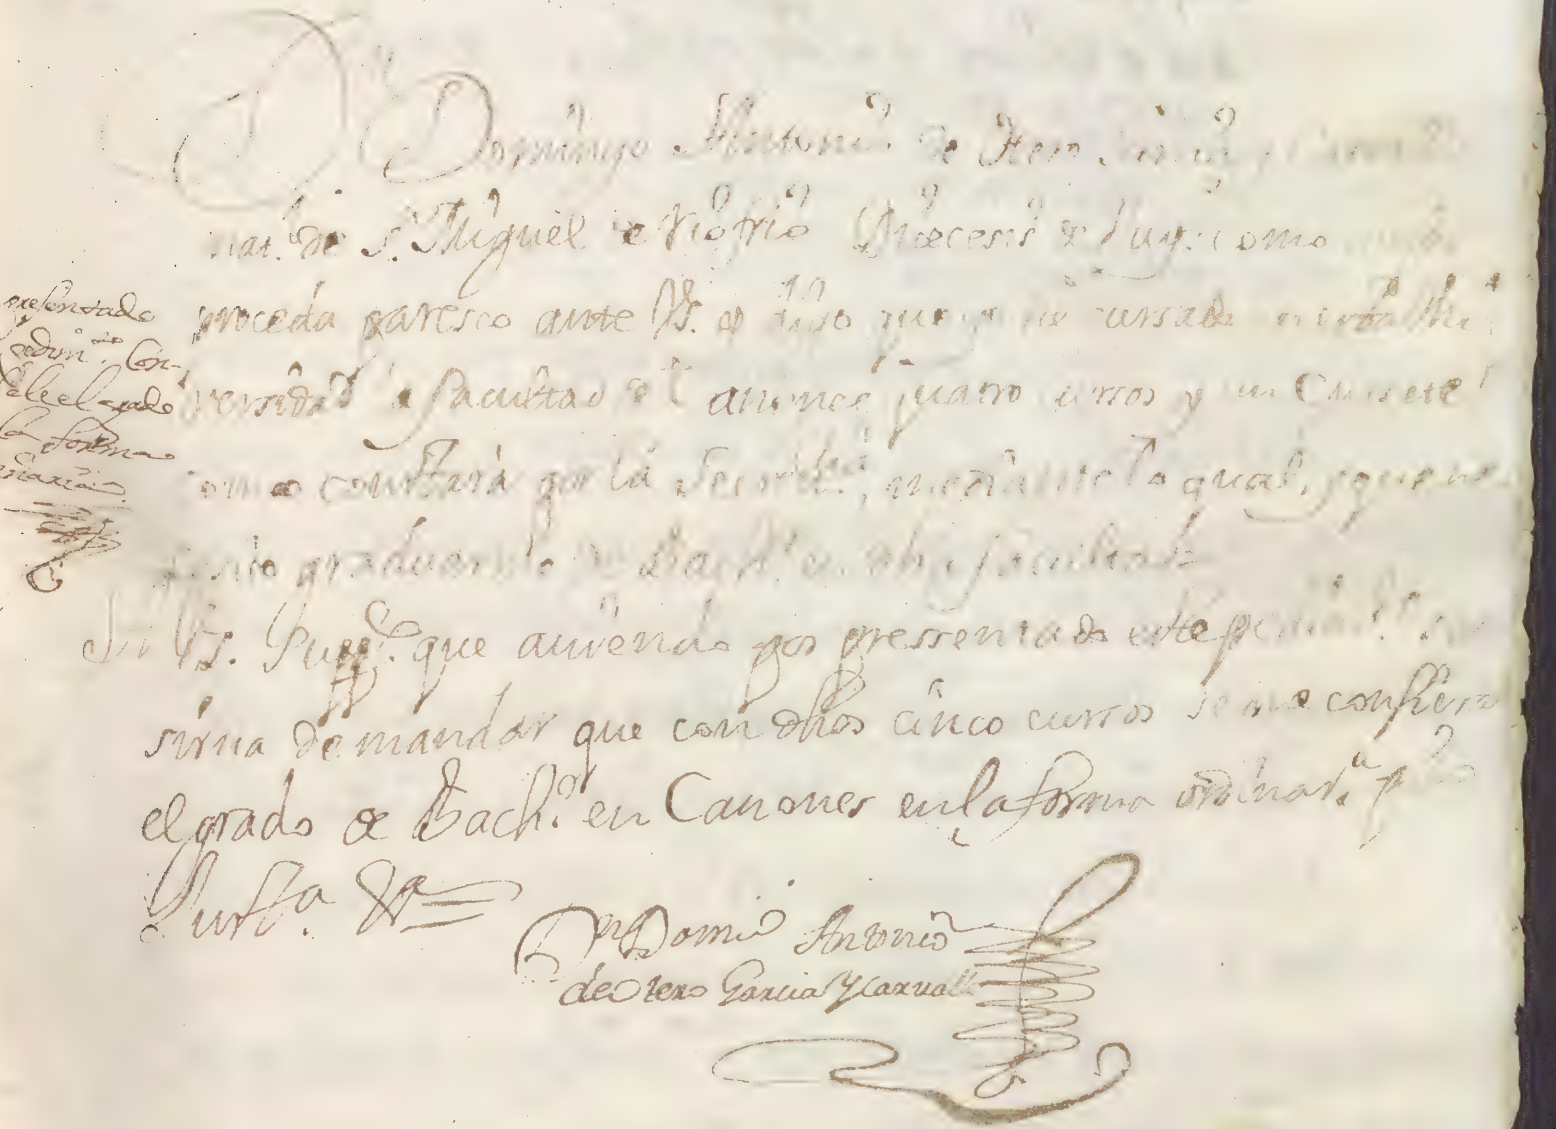 Dn Domingo Antonio de Otero Garcia y Carvallo
nat.l de S. Miguel de Riofrio Diocesis de Tuy: como
proceda paresco ante Vs. y digo que he cursado en esta Uni
versidad la facultad de Canones quatro cursos y un Cursete
como constara por la Secret.ria, mediante lo qual, y que ne
graduarme de Bach.r en dha facultad
A Vs. Supp.co que auiendo por pressentado este pedim.to se
sirua de mandar que con dhos cinco cursos se me confiera
el grado de Bach.r en Canones en la forma ordinar.a p
Just.a &a
Dn Dom.o Antonio
de Otero Garcia Y Caruallo
presentado
pedim.to Con
dele el grado
la forma